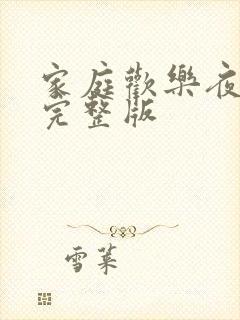 家庭歡樂夜
完整版
雪葉